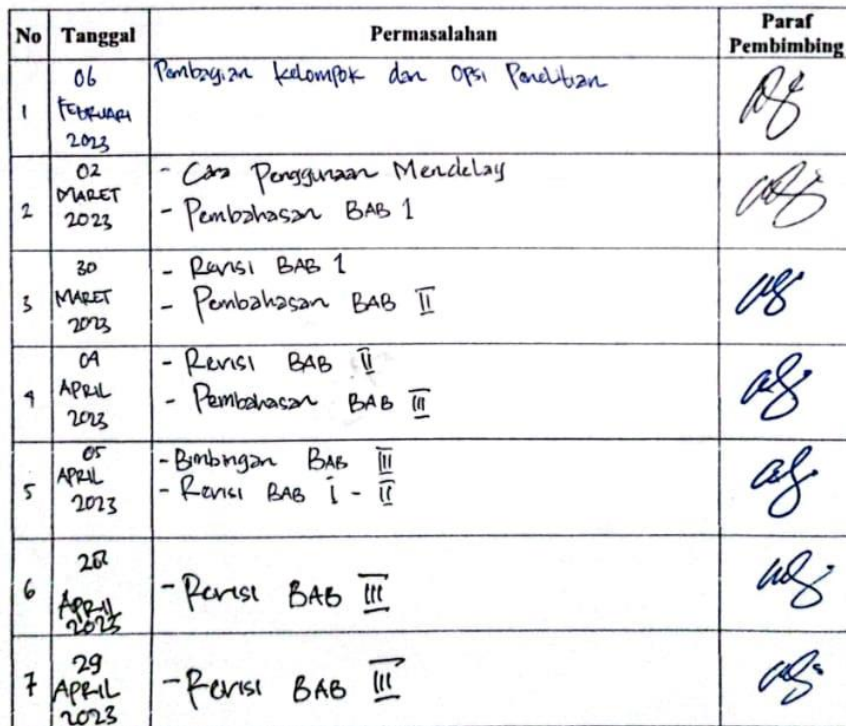 No Tanggal Permasalahan Paraf
Pembimbing
1
06
FEBRUARI
2023
Pembagian Kelompok dan Opsi Penelitian
2
02
MARET
2023
- Cara Penggunaan Mendelay
- Pembahasan BAB 1
3
30
MARET
2023
- Revisi BAB 1
- Pembahasan BAB II
4
04
APRIL
2023
- Revisi BAB II
- Pembahasan BAB III
5
05
APRIL
2023
- Bimbingan BAB III
- Revisi BAB I - II
6
APRIL
2023
- Revisi BAB III
7
29
APRIL
2023
- Revisi BAB III